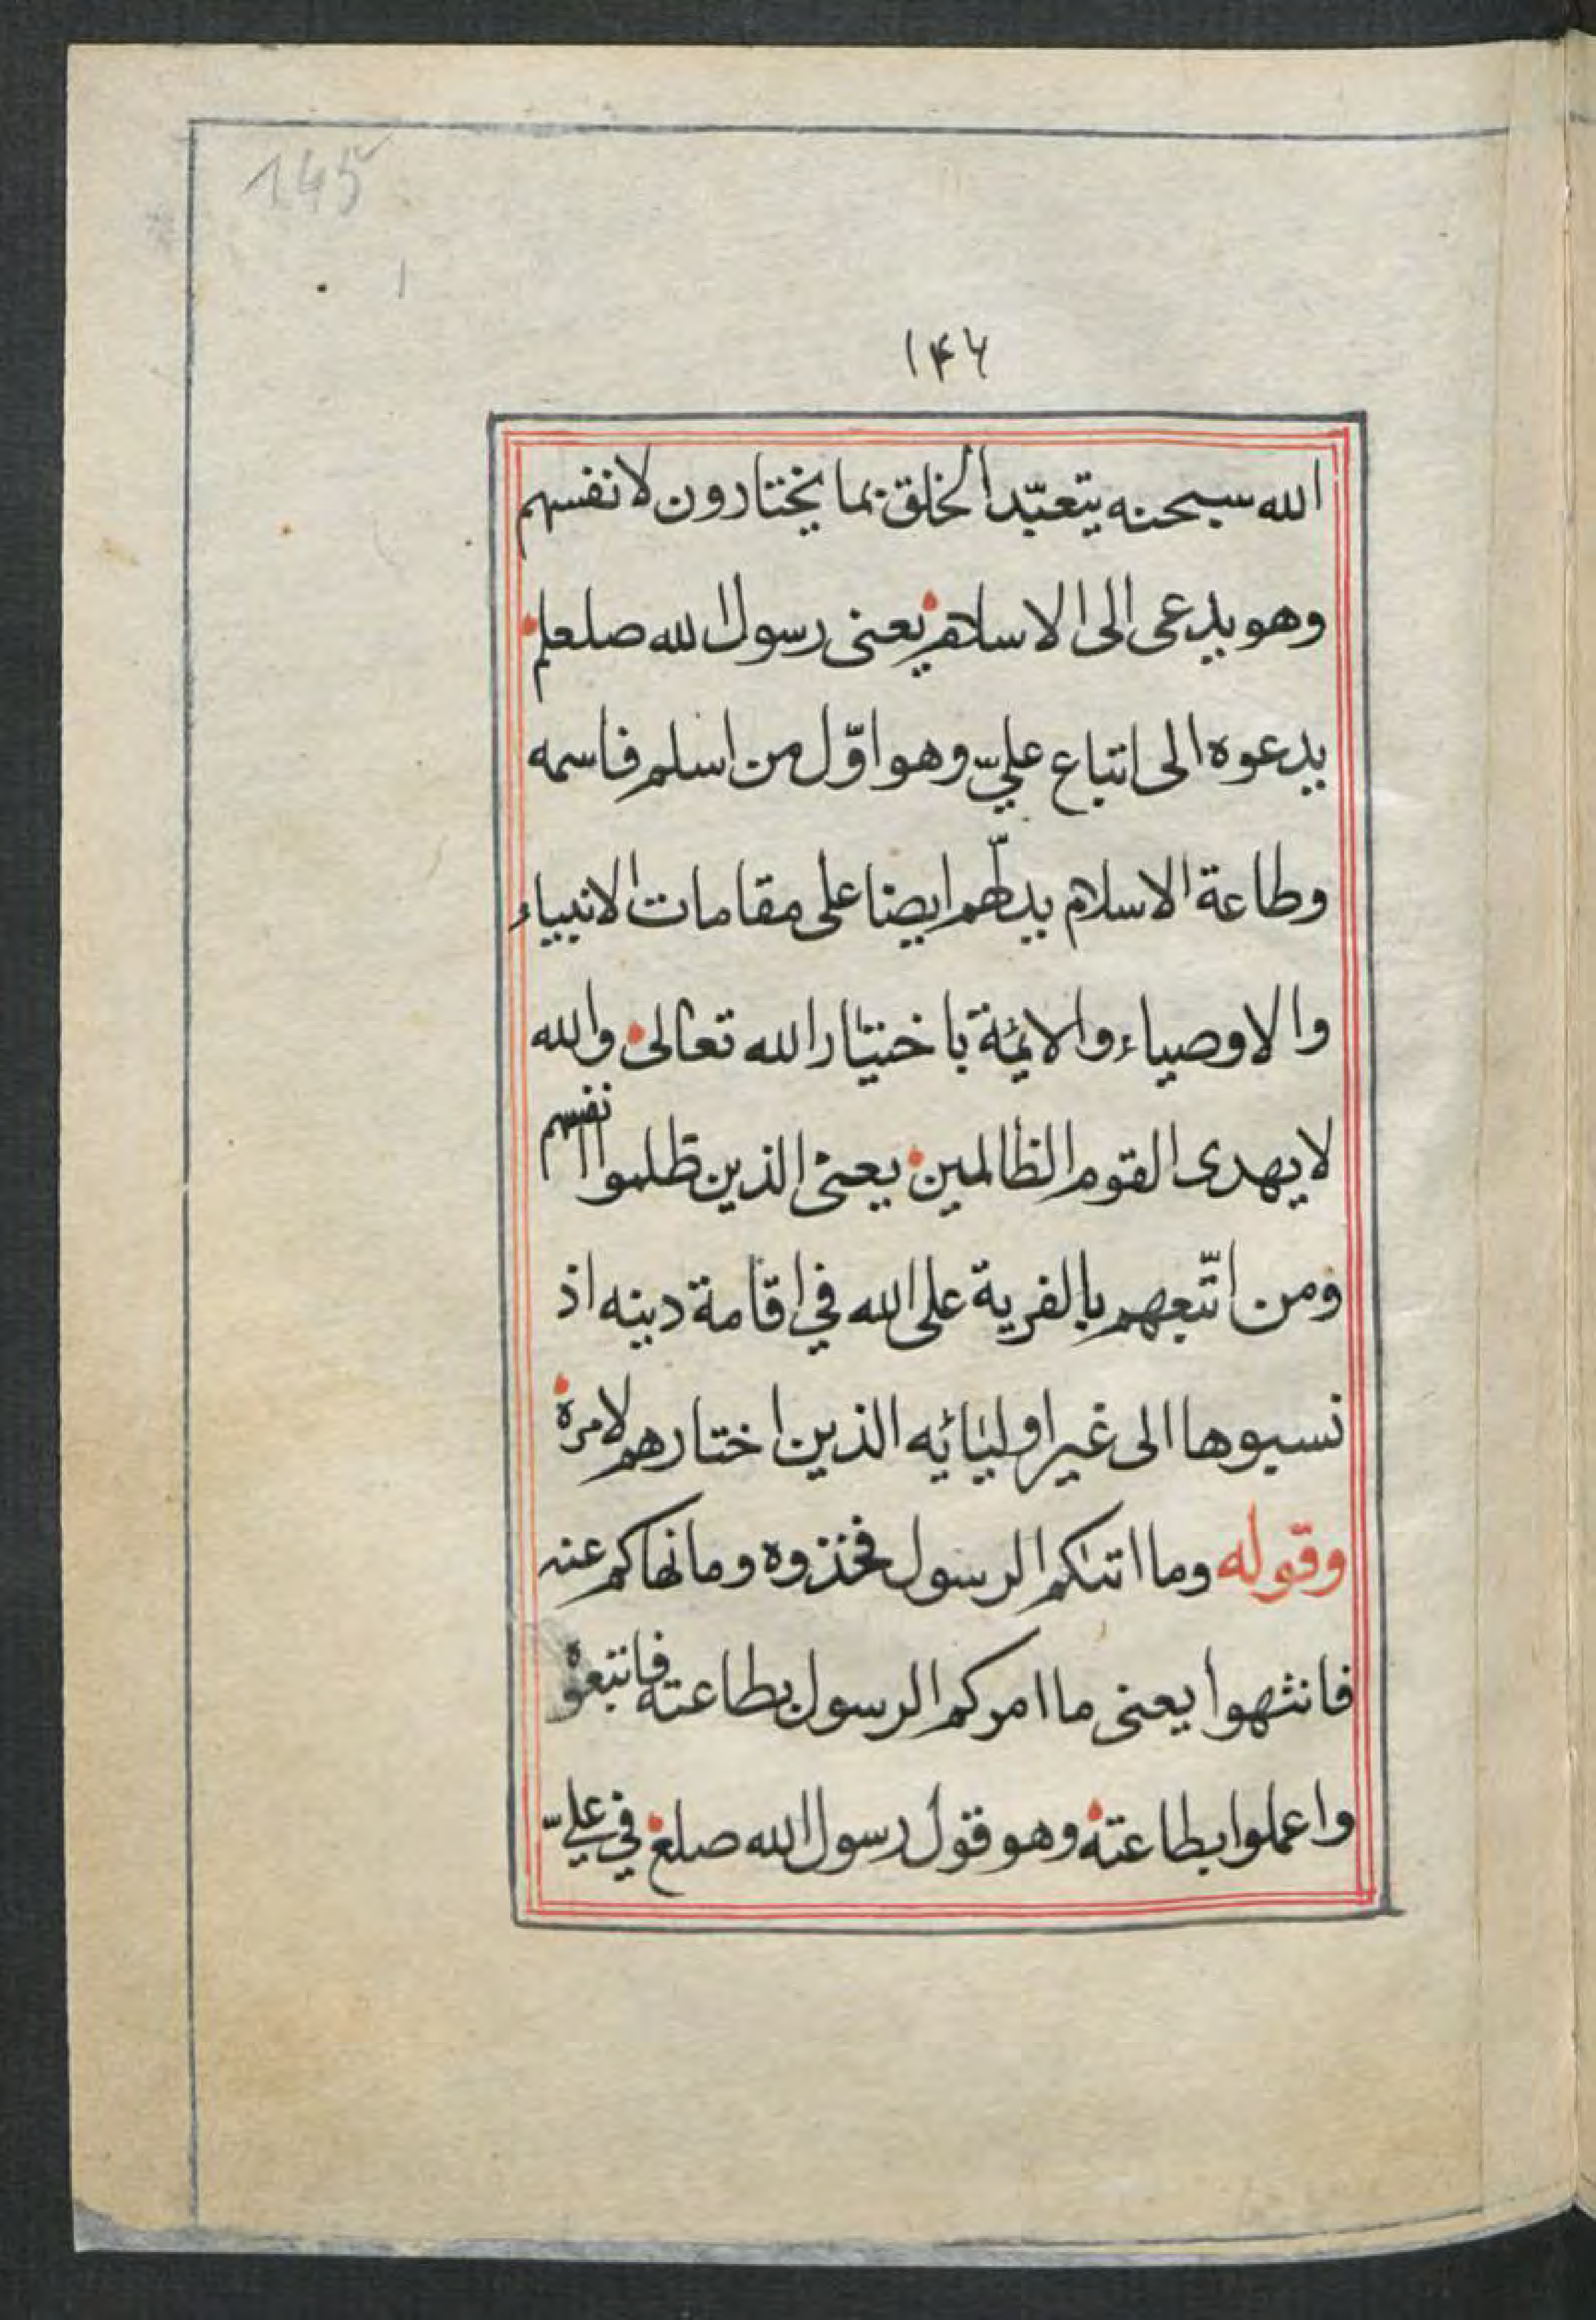 145
۱۴۶
الله سبحنه يتعبّد الخلق بما يختارون لانفسهم
وهو يدعى الى الاسلام يعنى رسول الله صلعلم
يدعوه الى اتباع عليّ وهو اوّل من اسلم فاسمه
وطاعة الاسلام يدلّهم ايضا على مقامات الانبياء
والاوصياء والائمة باختيار الله تعالى والله
لا يهدى القوم الظالمين يعنى الذين ظلموا انفسهم
ومن اتّبعهم بالفرية على الله في اقامة دينه اذ
نسبوها الى غير اوليائه الذين اختارهم لامره
وقوله وما اتىكم الرسول فخذوه وما نهاكم عنه
فانتهوا يعنى ما امركم الرسول بطاعته فاتبعوه
واعملوا بطاعته وهو قول رسول الله صلع في عليّ